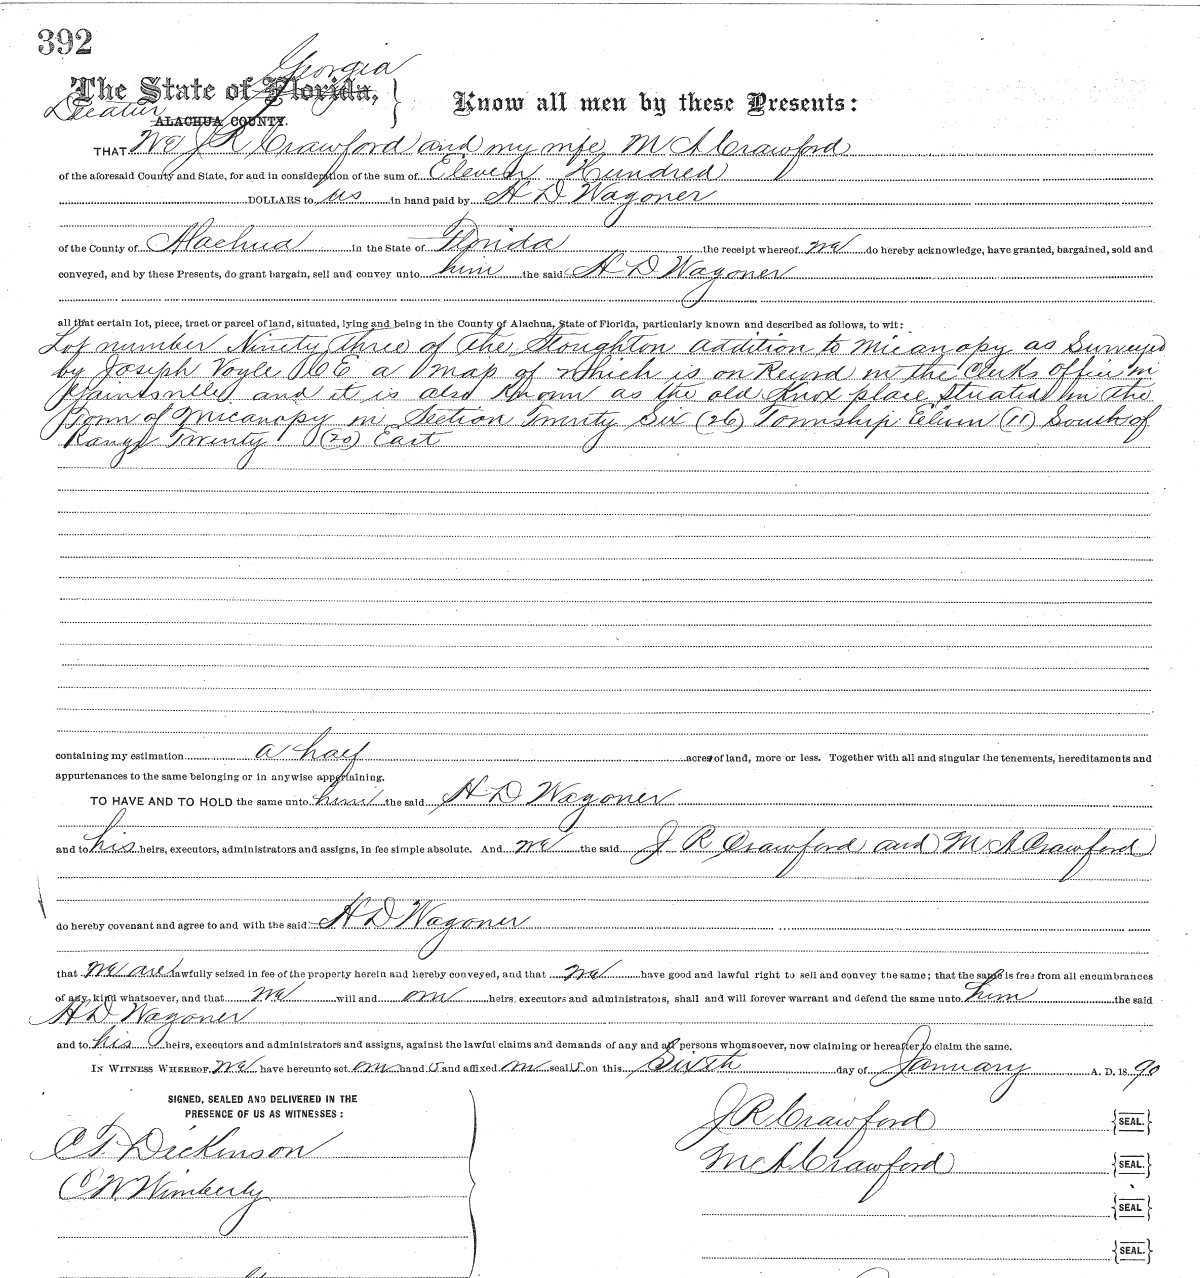 392
Georgia
The State of Florida,
Decatur ALACHUA COUNTY. Know all men by these Presents:
THAT We J R Crawford and my wife M A Crawford
of the aforesaid County and State, for and in consideration of the sum of Eleven Hundred
DOLLARS to us in hand paid by H D Wagoner
of the County of Alachua in the State of Florida the receipt whereof we do hereby acknowledge, have granted, bargained, sold and
conveyed, and by these Presents, do grant bargain, sell and convey unto him the said H D Wagoner
all that certain lot, piece, tract or parcel of land, situated, lying and being in the County of Alachua, State of Florida, particularly known and described as follows, to wit:
Lot number Ninety three of the Stoughton addition to Micanopy as Surveyed
by Joseph Voyle C E a map of which is on Record in the Clerks office in
Gainsville and it is also Known as the old Knox place Situated in the
Town of Micanopy in Section Twenty Six (26) Township Eleven (11) South of
Range Twenty (20) East
containing my estimation a half acres of land, more or less. Together with all and singular the tenements, hereditaments and
appurtenances to the same belonging or in anywise appertaining.
TO HAVE AND TO HOLD the same unto him the said H D Wagoner
and to his heirs, executors, administrators and assigns, in fee simple absolute. And we the said J R Crawford and M A Crawford
do hereby covenant and agree to and with the said H D Wagoner
that we are lawfully seized in fee of the property herein and hereby conveyed, and that we have good and lawful right to sell and convey the same; that the same is free from all encumbrances
of any kind whatsoever, and that we will and our heirs, executors and administrators, shall and will forever warrant and defend the same unto him the said
H D Wagoner
and to his heirs, executors and administrators and assigns, against the lawful claims and demands of any and all persons whomsoever, now claiming or hereafter to claim the same.
IN WITNESS WHEREOF, we have hereunto set our hand s and affixed our seal s on this Sixth day of January A. D. 18 90
SIGNED, SEALED AND DELIVERED IN THE
PRESENCE OF US AS WITNESSES:
J R Crawford {SEAL.}
C T Dickinson
M A Crawford {SEAL.}
C W Wimberly
{SEAL.}
{SEAL.}